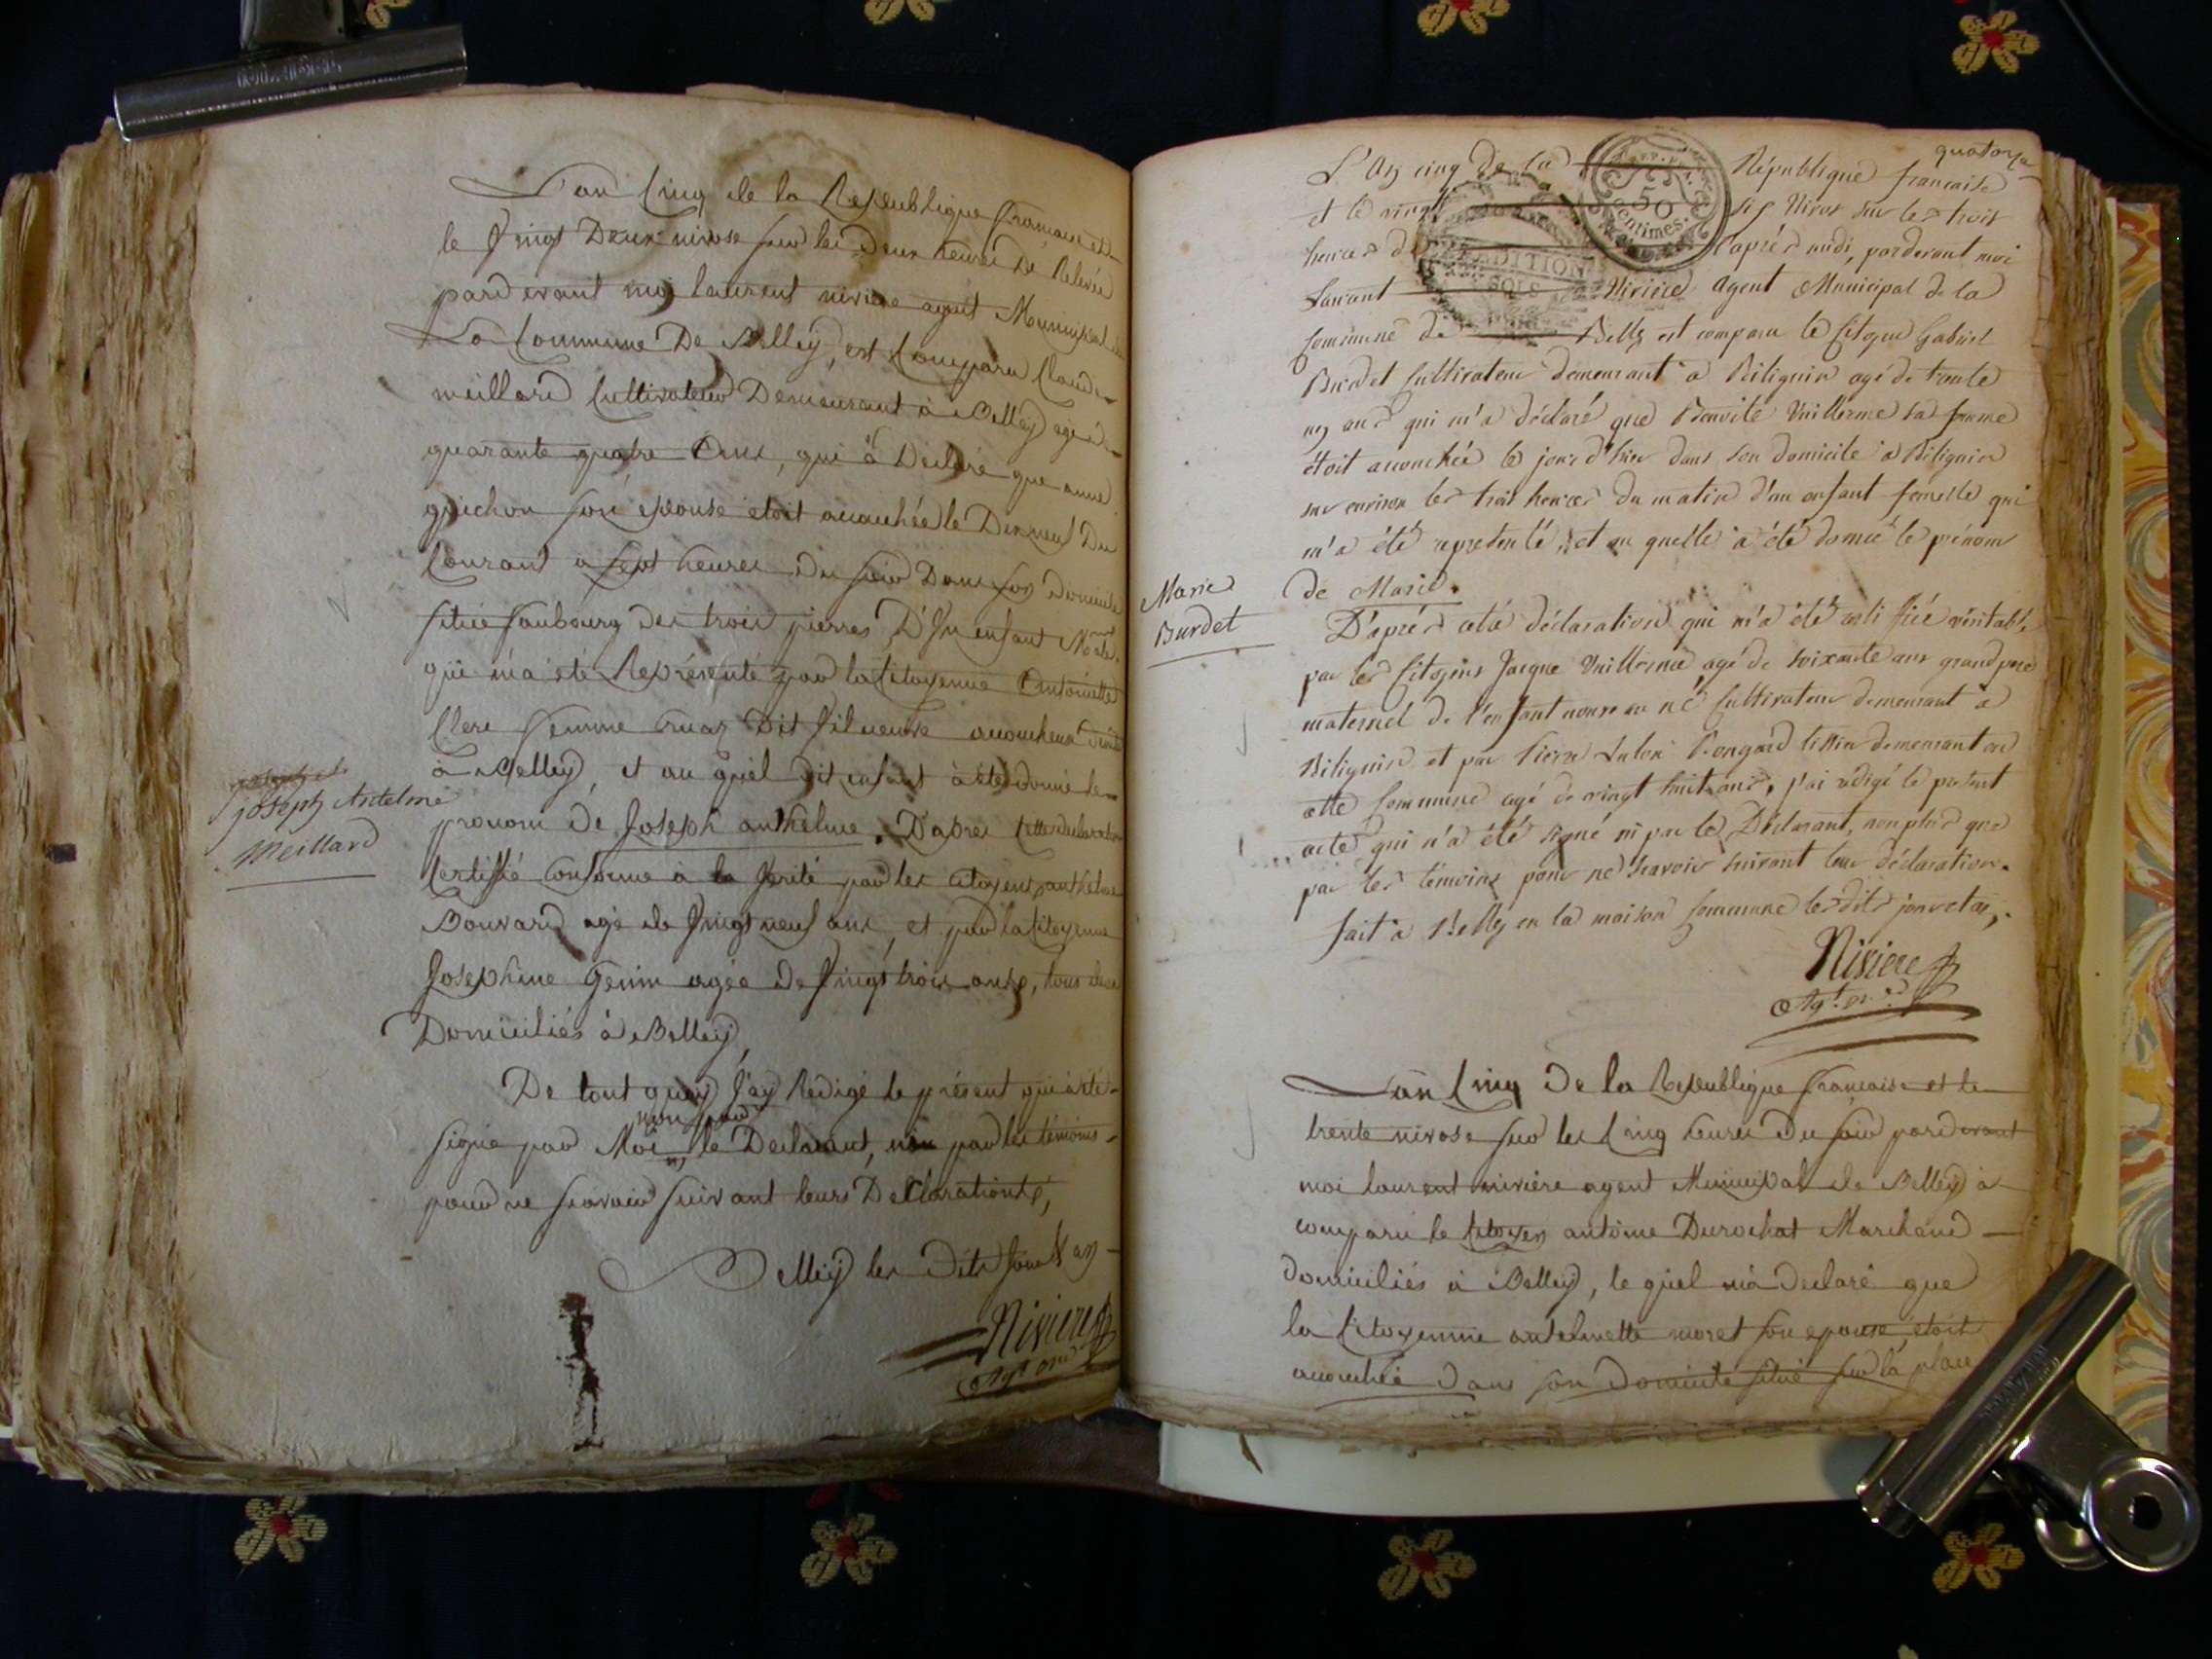 L'an Cinq de la Republique francaise et
le Vingt Deux nivose sur les Deux heures De Relevée
pardevant moi laurent niviere agent Municipal de
La Commune De Belley, est Comparu Claude
meillard Cultivateur Demeurant à Belley agé de
quarante quatre Ans, qui a Declaré que anne
guichon son épouse etoit accouchée le Dix neuf Du
Courant à sept heures du soir Dans son domicile
situé faubourg des trois pierres, D'Un enfant Male
qui m'a été Représenté par la Citoyenne Antoinette
Clerc femme cruaz Dit fileuse accoucheuse
à Belley, et au quel dit enfant à été donné le
joseph Antelme
Meillard
pronom de Joseph anthelme. D'apres Cette declaration
Certiffié Conforme à la Verité par les Citoyens anthelme
Bouvard agé de Vingt neuf ans, et par la Citoyenne
Josephine Genin agée de Vingt trois ans, tous deux
Domiciliés à Belley,
De tout quoy J'ay Redigé le présent qui à été
non par
signé par Moi, le Declarant, par les témoins
pour ne scavoir suivant leurs Déclarations,
Belleÿ les Dits Jour & an
Niviere
Agt mal
quatorze
L'An cinq de la République francaise
et le vingt six Nivos sur les trois
heures de l'après midi, pardevant moi
Laurant Niviere Agent Municipal de la
Commune de Belley est comparu le Citoyen Gabriel
Burdet Cultivateur demeurant à Bilignin agé de trante
un ans qui m'a déclaré que Benoite Vuillerme sa femme
étoit accouchée le jour d'hier dans son domicile à Bilignin
sur environ les trois heures du matin d'un enfant femelle qui
m'a été representé, et au quelle a été donné le prénom
Marie
Burdet
de Marie.
D'après cette déclaration qui m'a été certifiée véritable
par les Citoyens Jacque Vuillerme, agé de soixante ans grand pere
maternel de l'enfant nouveau né Cultivateur demeurant à
Bilignin et par Pierre Bongard tissier demeurant en
cette Commune agé de vingt huit ans, j'ai rédigé le présent
acte qui n'a été signé ni par le Déclarant, non plus que
par les témoins pour ne savoir suivant leur déclaration.
fait à Belley en la maison Commune les dits jour et an,
Niviere
Agt mal
50
Centimes.
L'an Cinq De la Republique francaise et le
trente nivose sur les Cinq heures Du soir pardevant
moi laurent niviere agent Municipal de Belley à
comparu le Citoyen antoine Durochat Marchand
domiciliés à Belley, le quel m'à declaré que
la Citoyenne antelmette moret son epouse étoit
accouchée dans son domicile situé sur la place